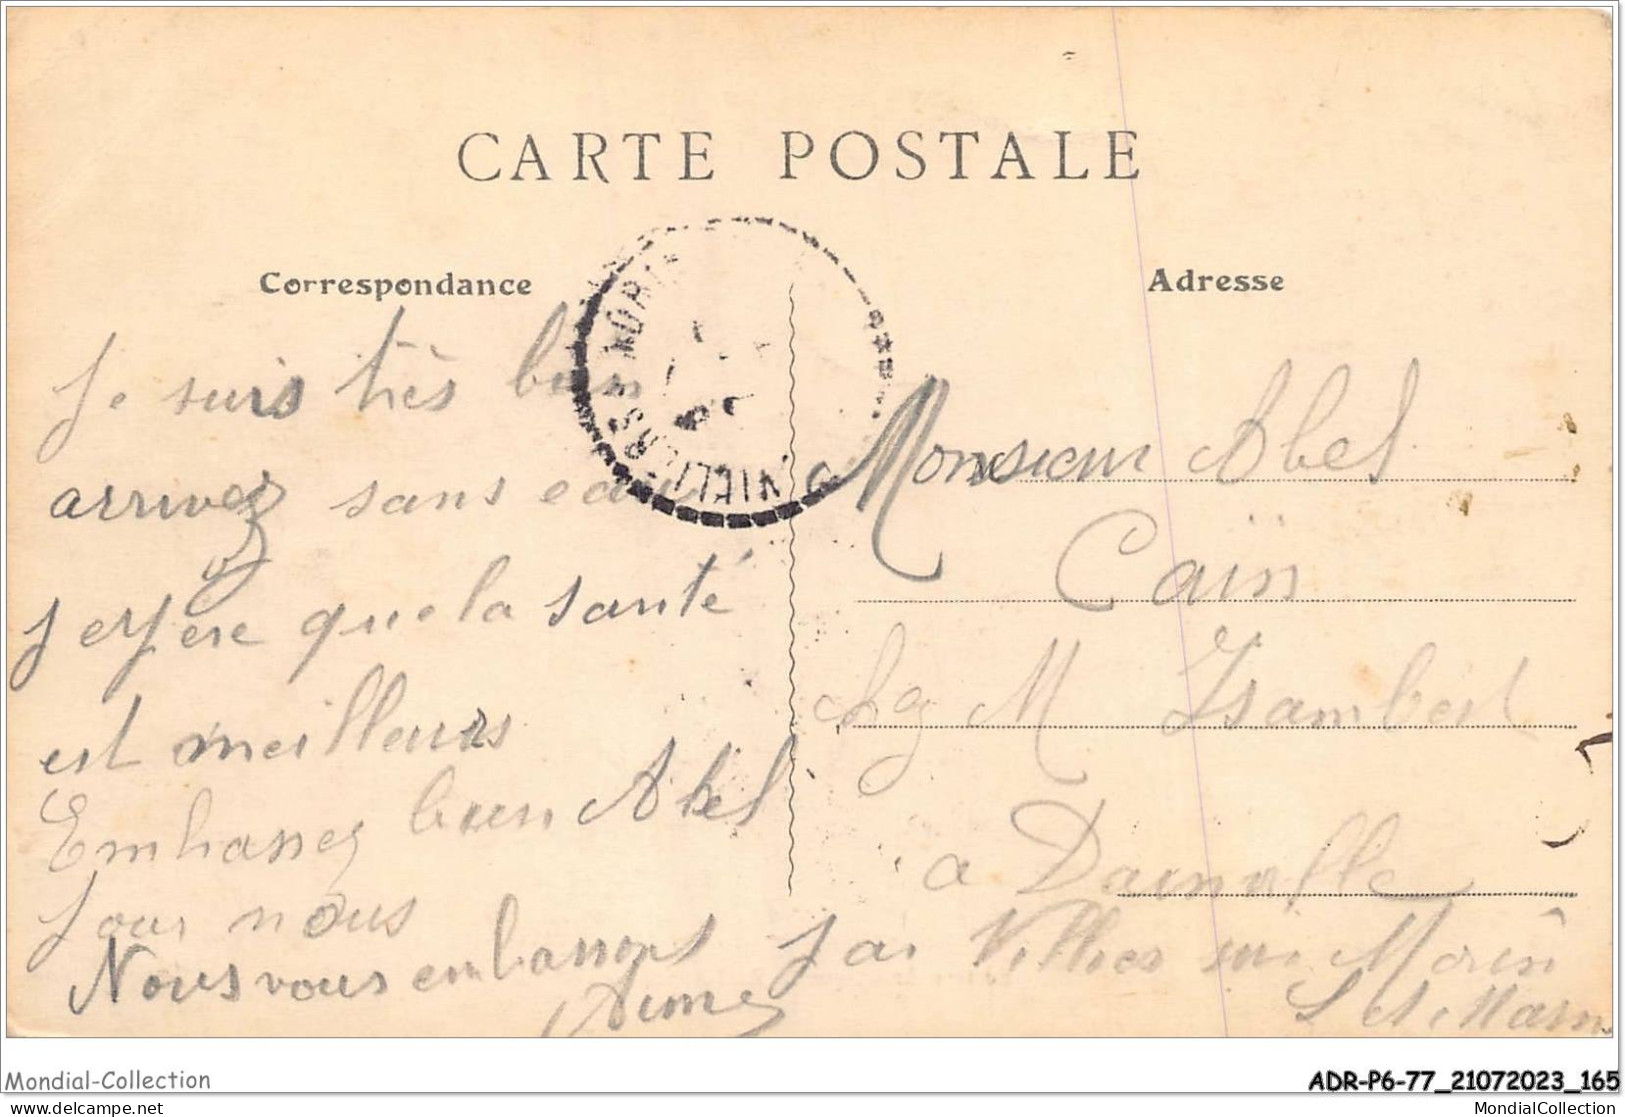 CARTE POSTALE
Correspondance
Je suis très bien
arrivez sans eau
J espere que la santé
est meilleurs
Embrassez bien Abel
pour nous
Nous vous embrassons
Aimé
Adresse
Monsieur Abel
Caïn
chez M Isambert
a Dainville
par Villiers sur Morin
S et Marn
VILLIERS-S-MORIN
Mondial-Collection
ADR-P6-77_21072023_165
delcampe.net
MondialCollection